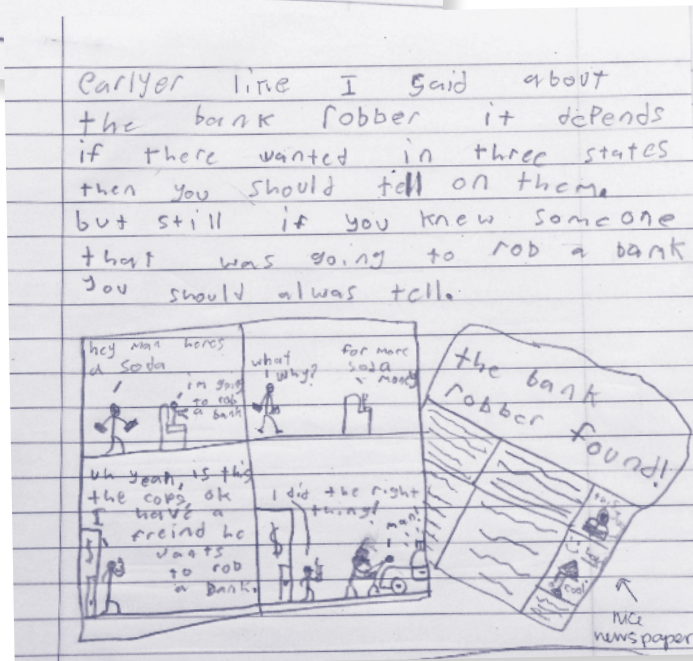 Earlyer like I said about
the bank robber it depends
if there wanted in three states
then you should tell on them.
but still if you knew someone
that was going to rob a bank
you should alwas tell.
hey man heres
a soda
im going
to rob
a bank
what
why?
for more
soda
money
uh yeah, is this
the cops, ok
I have a
freind he
wants
to rob
a bank.
$
I did the right
thing!
$
man!
the bank
robber found!
nice
newspaper